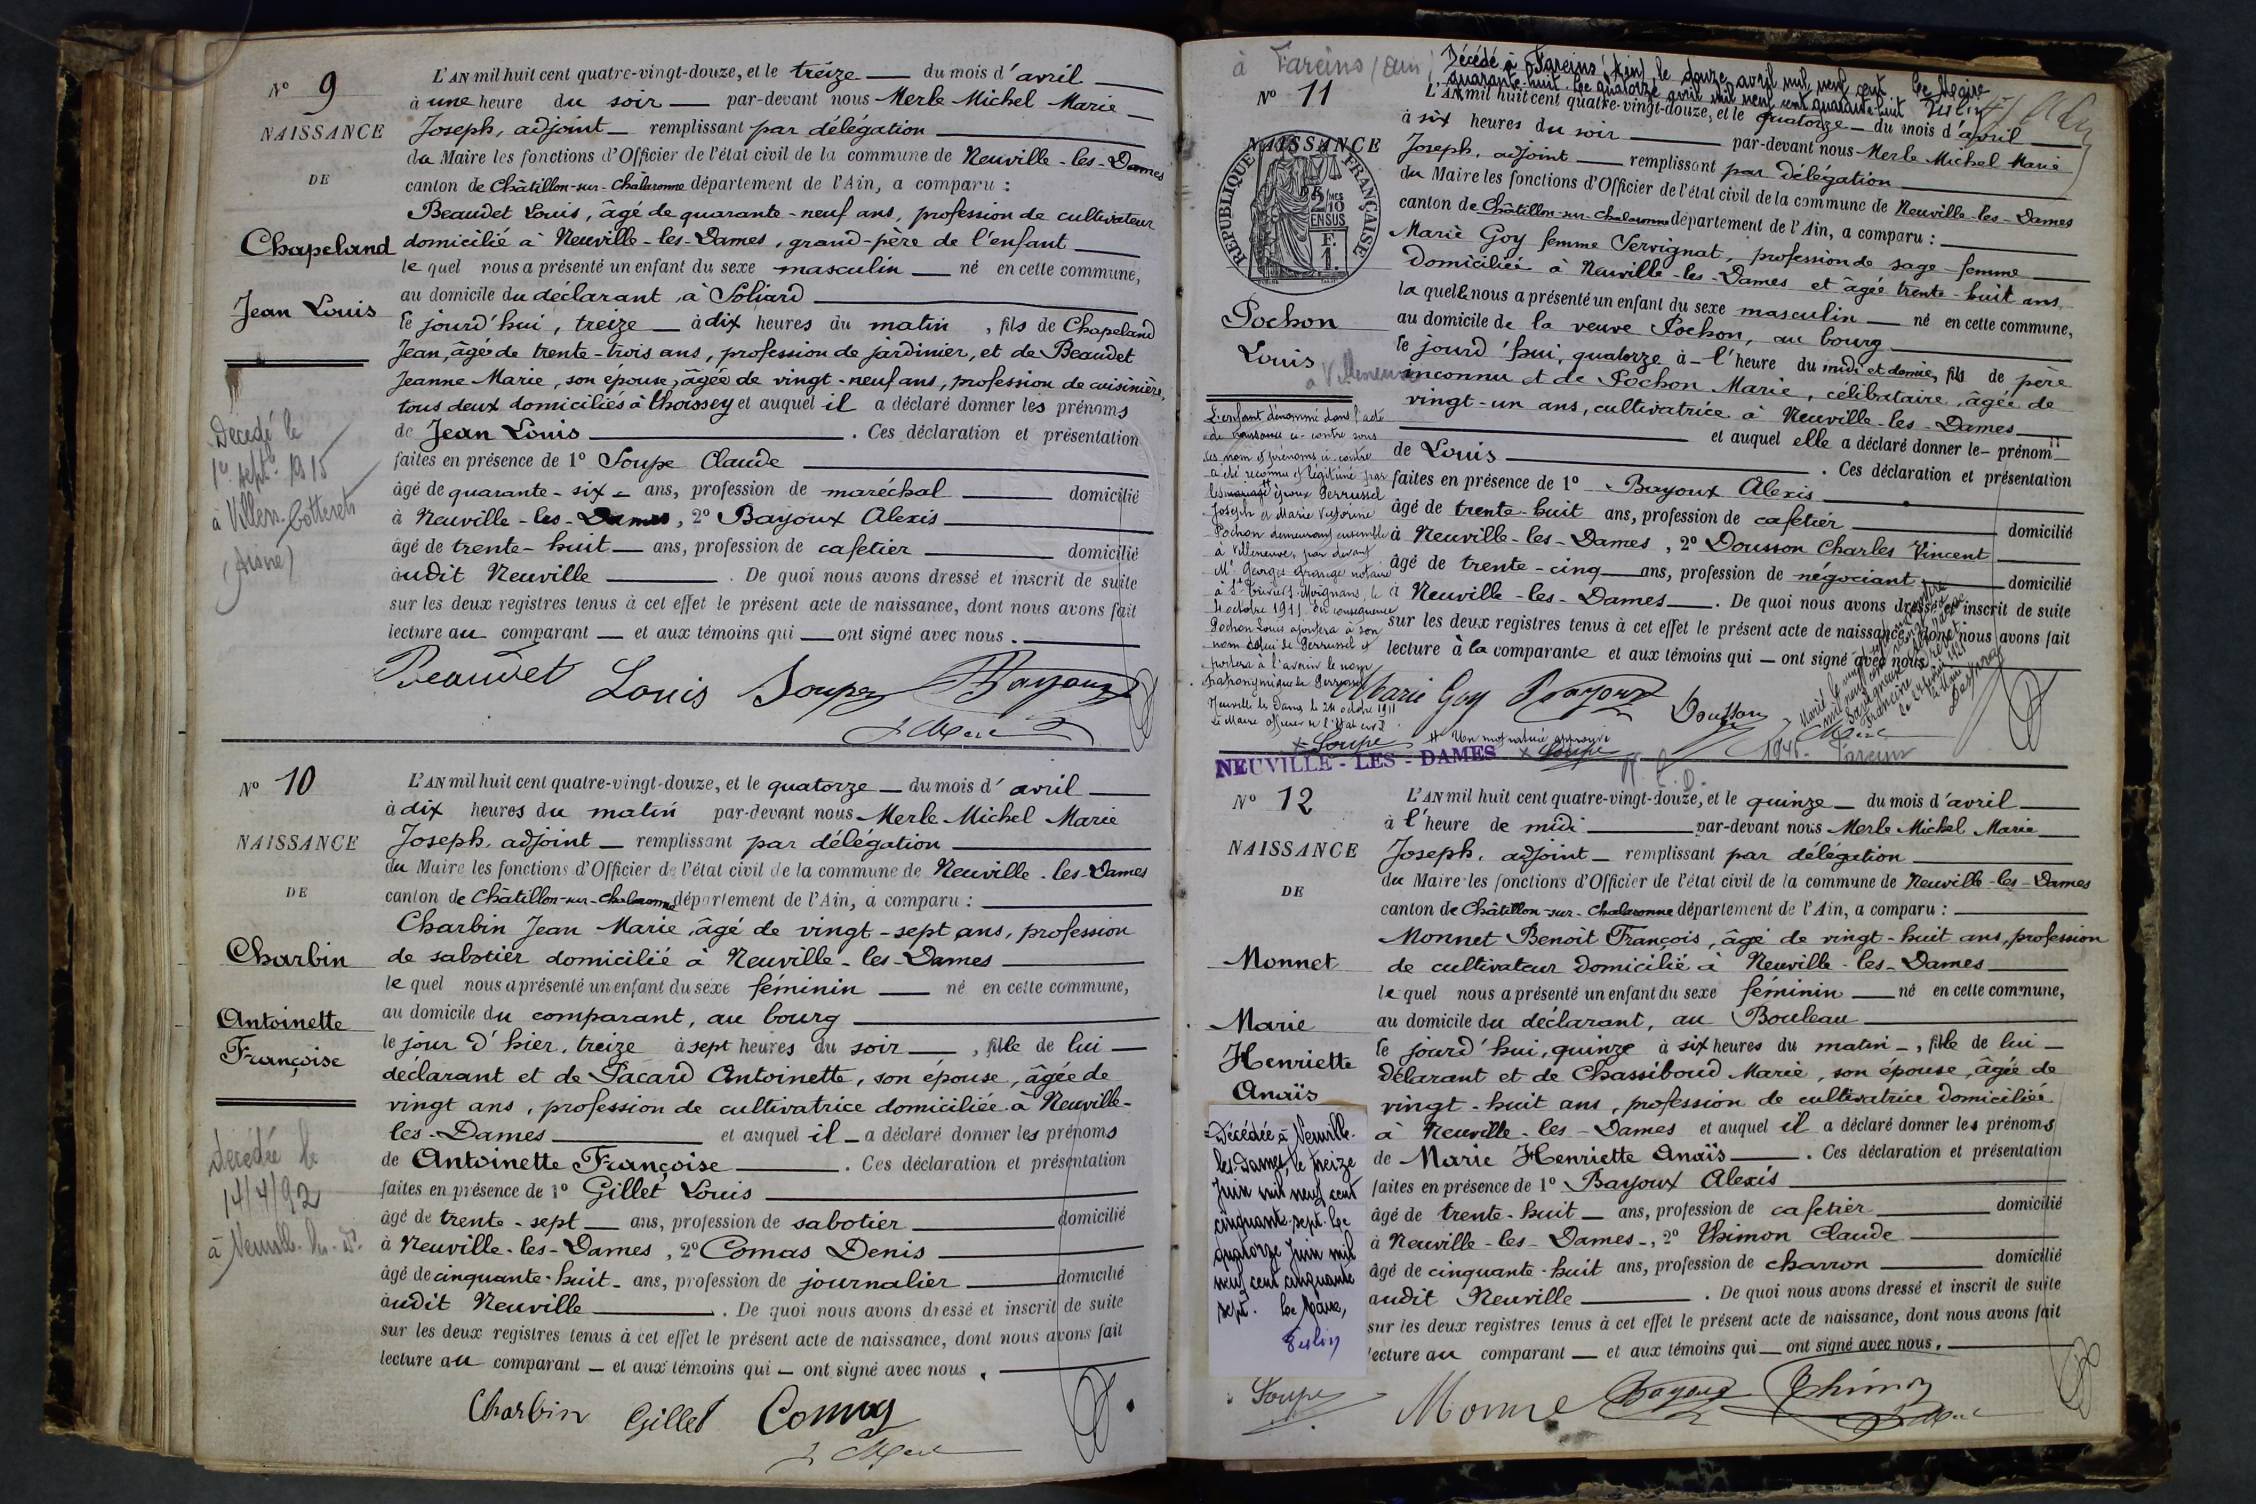 Nº 9
NAISSANCE
DE
Chapeland
Jean Louis
Décédé le
1er sept. 1915
à Villers-Cotterets
(Aisne)
L'AN mil huit cent quatre-vingt-douze, et le treize du mois d'avril
à une heure du soir par-devant nous Merle Michel Marie
Joseph, adjoint remplissant par délégation
du Maire les fonctions d'Officier de l'état civil de la commune de Neuville-les-Dames
canton de Châtillon-sur-Chalaronne département de l'Ain, a comparu :
Beaudet Louis, âgé de quarante-neuf ans, profession de cultivateur
domicilié à Neuville-les-Dames, grand-père de l'enfant
le quel nous a présenté un enfant du sexe masculin né en cette commune,
au domicile du déclarant, à Soliard
le jourd'hui, treize à dix heures du matin, fils de Chapeland
Jean, âgé de trente-trois ans, profession de jardinier, et de Beaudet
Jeanne Marie, son épouse, âgée de vingt-neuf ans, profession de cuisinière,
tous deux domiciliés à Thoissey et auquel il a déclaré donner les prénoms
de Jean Louis . Ces déclaration et présentation
faites en présence de 1º Soupe Claude
âgé de quarante-six ans, profession de maréchal domicilié
à Neuville-les-Dames, 2º Bayoux Alexis
âgé de trente-huit ans, profession de cafetier domicilié
audit Neuville . De quoi nous avons dressé et inscrit de suite
sur les deux registres tenus à cet effet le présent acte de naissance, dont nous avons fait
lecture au comparant et aux témoins qui ont signé avec nous.
Beaudet Louis Soupe Bayoux
Merle
Nº 10
NAISSANCE
DE
Charbin
Antoinette
Françoise
Décédée le
14/4/92
à Neuville-les-D.
L'AN mil huit cent quatre-vingt-douze, et le quatorze du mois d'avril
à dix heures du matin par-devant nous Merle Michel Marie
Joseph, adjoint remplissant par délégation
du Maire les fonctions d'Officier de l'état civil de la commune de Neuville-les-Dames
canton de Châtillon-sur-Chalaronne département de l'Ain, a comparu :
Charbin Jean Marie, âgé de vingt-sept ans, profession
de sabotier domicilié à Neuville-les-Dames
le quel nous a présenté un enfant du sexe féminin né en cette commune,
au domicile du comparant, au bourg
le jour d'hier, treize à sept heures du soir, fille de lui
déclarant et de Pacard Antoinette, son épouse, âgée de
vingt ans, profession de cultivatrice domiciliée à Neuville-
les-Dames et auquel il a déclaré donner les prénoms
de Antoinette Françoise . Ces déclaration et présentation
faites en présence de 1º Gillet Louis
âgé de trente-sept ans, profession de sabotier domicilié
à Neuville-les-Dames, 2º Comas Denis
âgé de cinquante-huit ans, profession de journalier domicilié
audit Neuville . De quoi nous avons dressé et inscrit de suite
sur les deux registres tenus à cet effet le présent acte de naissance, dont nous avons fait
lecture au comparant et aux témoins qui ont signé avec nous.
Charbin Gillet Comas
Merle
à Fareins (Ain)
Décédé à Fareins (Ain) le douze avril mil neuf cent
quarante-huit. Le quatorze avril mil neuf cent quarante-huit Le Maire
Nº 11
NAISSANCE
REPUBLIQUE FRANÇAISE
2/10
EN SUS
F.
1.
Pochon
Louis
à Villeneuve
L'enfant dénommé dans l'acte
de naissance ci-contre sous
les nom et prénoms ci-contre
a été reconnu et légitimé par
les mariage époux Perrussel
Joseph et Marie Victorine
Pochon demeurant ensemble
à Villeneuve, par devant
Mº Georges Grange notaire
à St Trivier s. Moignans, le
4 octobre 1911. En conséquence
Pochon Louis ajoutera à son
nom celui de Perrussel et
portera à l'avenir le nom
patronymique de Perrussel
Neuville les Dames le 24 octobre 1911
Le Maire officier de l'état civil
Soupe
Un mot rature approuvé
Soupe
L'AN mil huit cent quatre-vingt-douze, et le quatorze du mois d'avril
à six heures du soir par-devant nous Merle Michel Marie
Joseph, adjoint remplissant par délégation
du Maire les fonctions d'Officier de l'état civil de la commune de Neuville-les-Dames
canton de Châtillon-sur-Chalaronne département de l'Ain, a comparu :
Marie Goy femme Servignat, profession de sage-femme
domiciliée à Neuville-les-Dames et âgée trente-huit ans
la quelle nous a présenté un enfant du sexe masculin né en cette commune,
au domicile de la veuve Pochon, au bourg
le jourd'hui, quatorze à l'heure du midi et demie, fils de père
inconnu et de Pochon Marie, célibataire, âgée de
vingt-un ans, cultivatrice à Neuville-les-Dames
et auquel elle a déclaré donner le prénom
de Louis . Ces déclaration et présentation
faites en présence de 1º Bayoux Alexis
âgé de trente-huit ans, profession de cafetier domicilié
à Neuville-les-Dames, 2º Dousson Charles Vincent
âgé de trente-cinq ans, profession de négociant domicilié
à Neuville-les-Dames . De quoi nous avons dressé et inscrit de suite
sur les deux registres tenus à cet effet le présent acte de naissance, dont nous avons fait
lecture à la comparante et aux témoins qui ont signé avec nous
Marie Goy Bayoux Dousson
Merle
1948. Fareins
NEUVILLE - LES - DAMES
Nº 12
NAISSANCE
DE
Monnet
Marie
Henriette
Anaïs
Décédée à Neuville-
les-Dames, le treize
Juin mil neuf cent
cinquante-sept. Le
quatorze Juin mil
neuf cent cinquante
sept. Le Maire,
Soupe
L'AN mil huit cent quatre-vingt-douze, et le quinze du mois d'avril
à l'heure de midi par-devant nous Merle Michel Marie
Joseph, adjoint remplissant par délégation
du Maire les fonctions d'Officier de l'état civil de la commune de Neuville-les-Dames
canton de Châtillon-sur-Chalaronne département de l'Ain, a comparu :
Monnet Benoit François, âgé de vingt-huit ans, profession
de cultivateur domicilié à Neuville-les-Dames
le quel nous a présenté un enfant du sexe féminin né en cette commune,
au domicile du déclarant, au Bouleau
le jourd'hui, quinze à six heures du matin, fille de lui
délarant et de Chassiboud Marie, son épouse, âgée de
vingt-huit ans, profession de cultivatrice domiciliée
à Neuville-les-Dames et auquel il a déclaré donner les prénoms
de Marie Henriette Anaïs . Ces déclaration et présentation
faites en présence de 1º Bayoux Alexis
âgé de trente-huit ans, profession de cafetier domicilié
à Neuville-les-Dames, 2º Thimon Claude
âgé de cinquante-huit ans, profession de charron domicilié
audit Neuville . De quoi nous avons dressé et inscrit de suite
sur les deux registres tenus à cet effet le présent acte de naissance, dont nous avons fait
lecture au comparant et aux témoins qui ont signé avec nous.
Monnet Bayoux Thimon
Merle